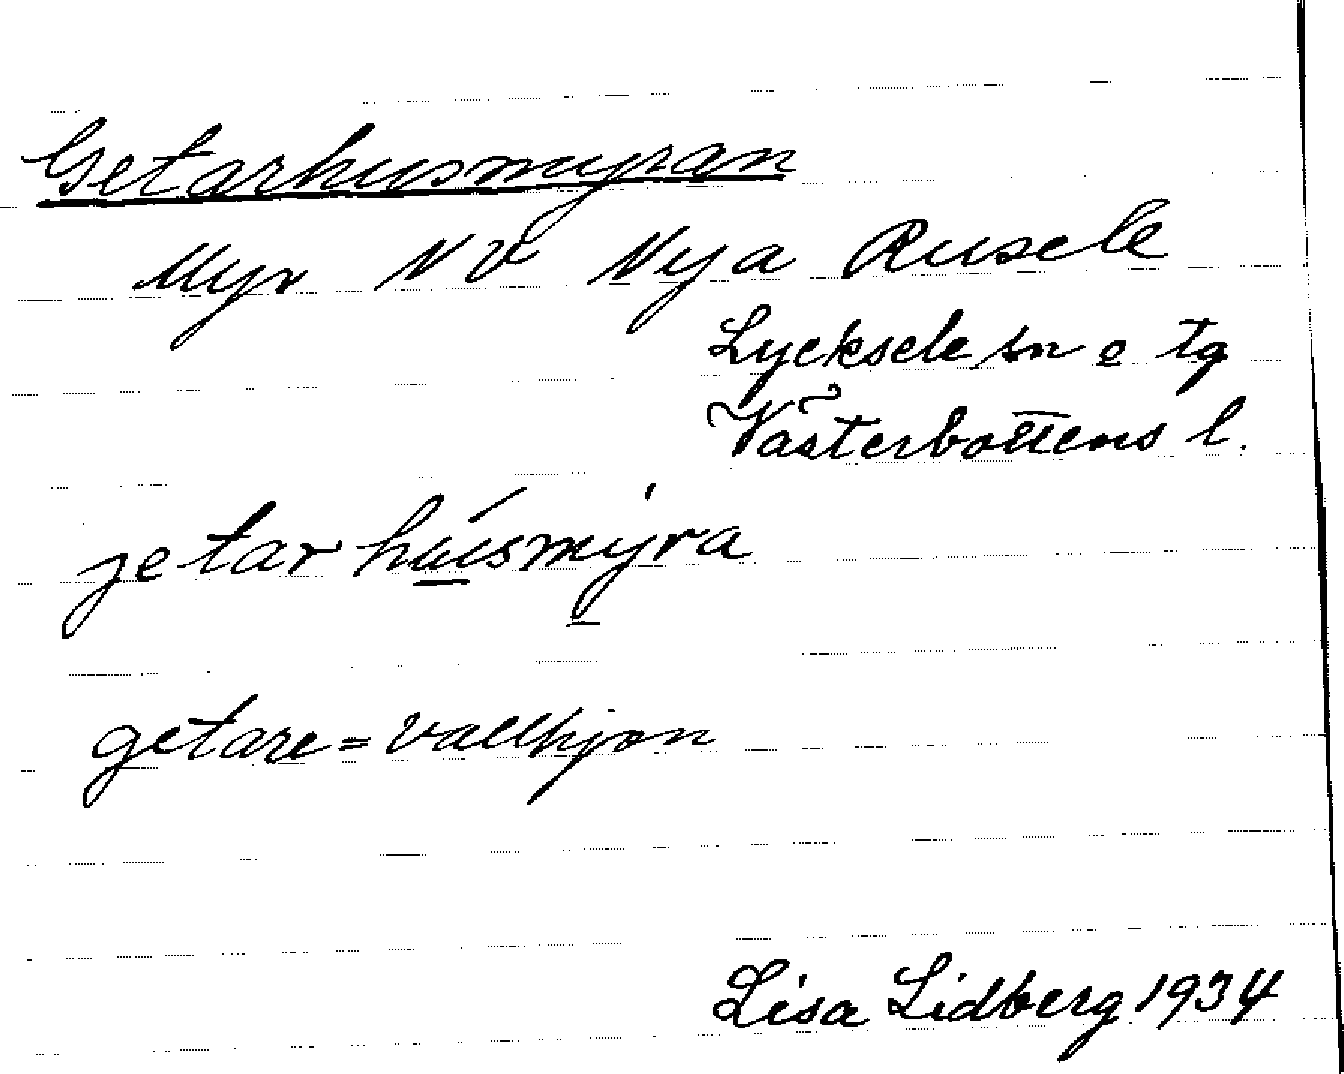 Getarhusmyran
Myr NV Nya Rusele
Lycksele sn o tg
Västerbottens l.
jetarhúsmyra
getare = vallhjon
Lisa Lidberg 1934